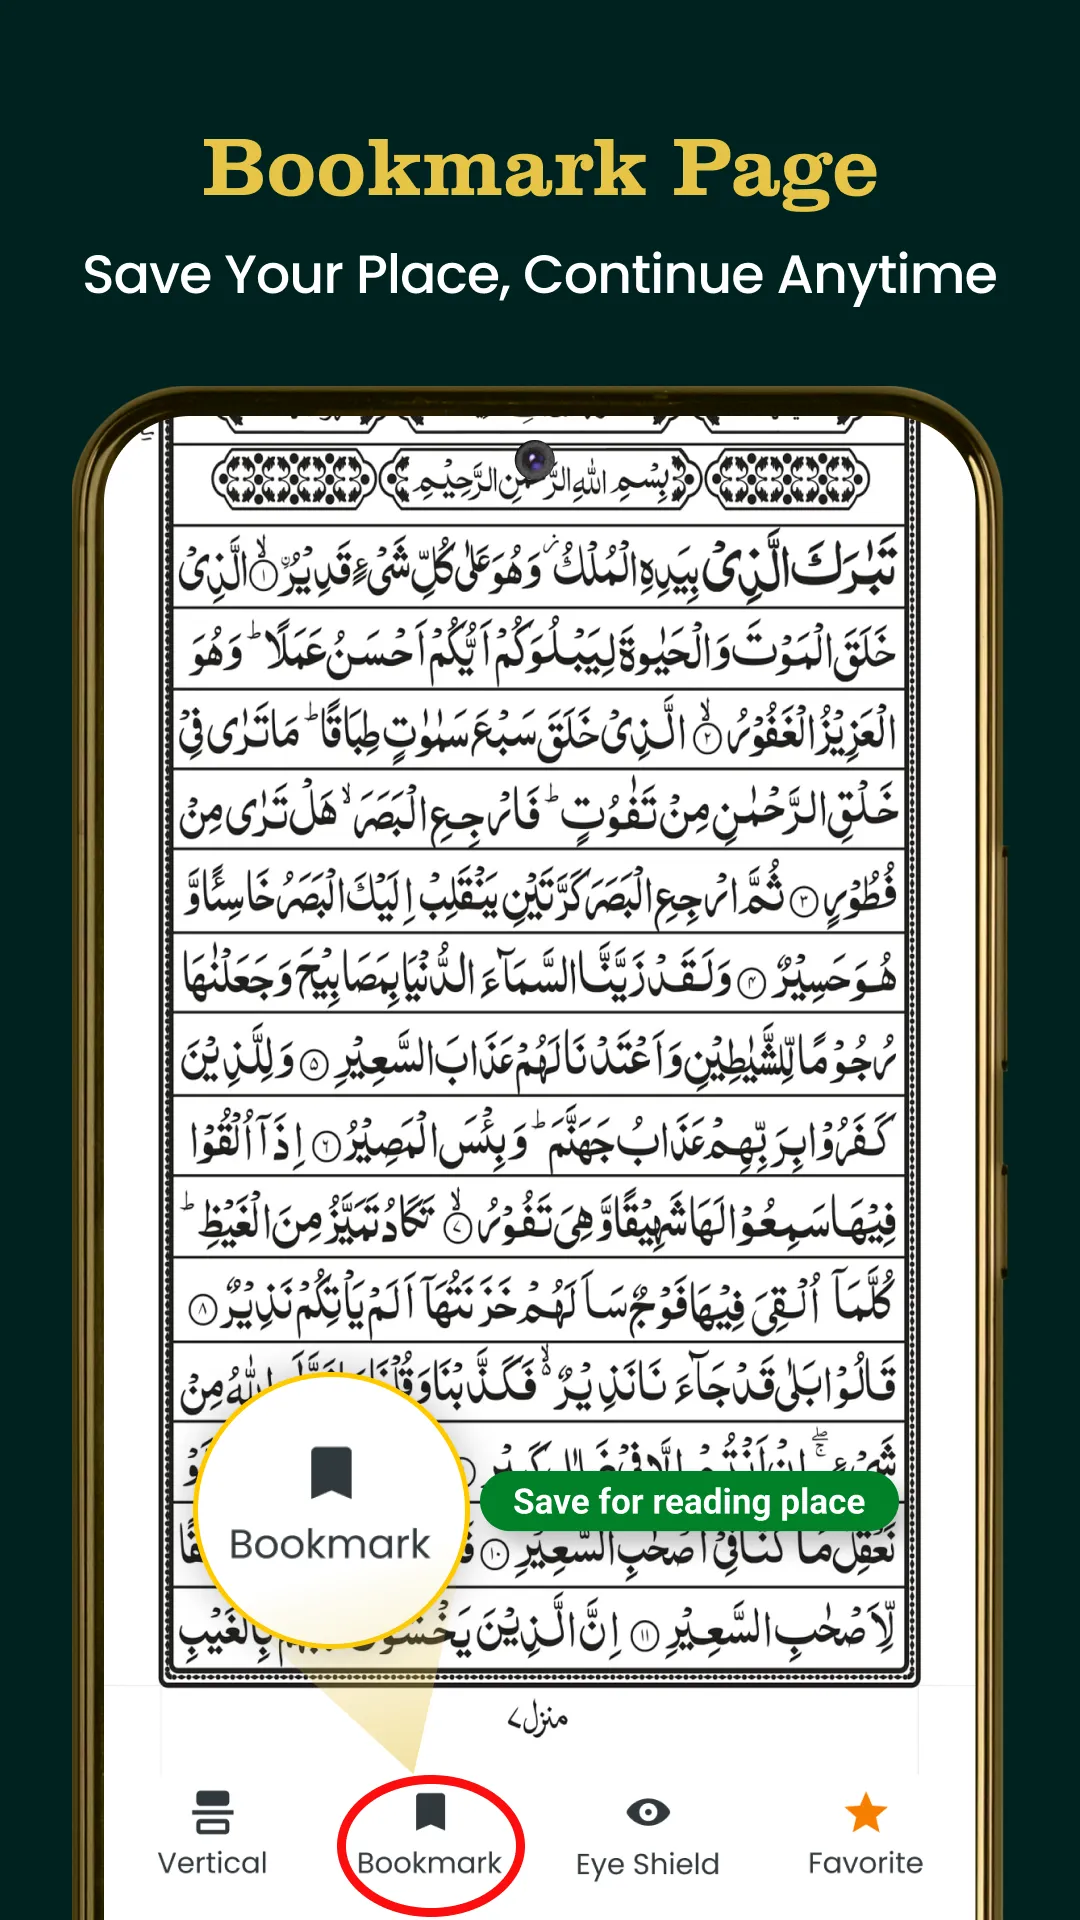 Bookmark Page
Save Your Place, Continue Anytime
بِسْمِ اللهِ الرَّحْمٰنِ الرَّحِيْمِ
تَبٰرَكَ الَّذِىْ بِيَدِهِ الْمُلْكُ ۡ وَهُوَ عَلٰى كُلِّ شَىْءٍ قَدِيْرُۨ ۙ﴿۱﴾ الَّذِىْ
خَلَقَ الْمَوْتَ وَالْحَيٰوةَ لِيَبْلُوَكُمْ اَيُّكُمْ اَحْسَنُ عَمَلًا ؕ وَهُوَ
الْعَزِيْزُ الْغَفُوْرُ ۙ﴿۲﴾ الَّذِىْ خَلَقَ سَبْعَ سَمٰوٰتٍ طِبَاقًا ؕ مَا تَرٰى فِىْ
خَلْقِ الرَّحْمٰنِ مِنْ تَفٰوُتٍ ؕ فَارْجِعِ الْبَصَرَ ۙ هَلْ تَرٰى مِنْ
فُطُوْرٍ ﴿۳﴾ ثُمَّ ارْجِعِ الْبَصَرَ كَرَّتَيْنِ يَنْقَلِبْ اِلَيْكَ الْبَصَرُ خَاسِئًا وَّ
هُوَ حَسِيْرٌ ﴿۴﴾ وَلَقَدْ زَيَّنَّا السَّمَآءَ الدُّنْيَا بِمَصَابِيْحَ وَجَعَلْنٰهَا
رُجُوْمًا لِّلشَّيٰطِيْنِ وَاَعْتَدْنَا لَهُمْ عَذَابَ السَّعِيْرِ ﴿۵﴾ وَلِلَّذِيْنَ
كَفَرُوْا بِرَبِّهِمْ عَذَابُ جَهَنَّمَ ؕ وَبِئْسَ الْمَصِيْرُ ﴿۶﴾ اِذَاۤ اُلْقُوْا
فِيْهَا سَمِعُوْا لَهَا شَهِيْقًا وَّهِىَ تَفُوْرُ ۙ﴿۷﴾ تَكَادُ تَمَيَّزُ مِنَ الْغَيْظِ ؕ
كُلَّمَاۤ اُلْقِىَ فِيْهَا فَوْجٌ سَاَلَهُمْ خَزَنَتُهَاۤ اَلَمْ يَاْتِكُمْ نَذِيْرٌ ﴿۸﴾
قَالُوْا بَلٰى قَدْ جَآءَنَا نَذِيْرٌ ۙ فَكَذَّبْنَا وَقُلْنَا اللهُ مِنْ
شَىْءٍ ۚ اِنْ اَنْتُمْ اِلَّا فِىْ ضَلٰلٍ كَبِيْرٍ
Save for reading place
Bookmark
نَعْقِلُ مَا كُنَّا فِىْۤ اَصْحٰبِ السَّعِيْرِ ﴿۱۰﴾
لِّاَصْحٰبِ السَّعِيْرِ ﴿۱۱﴾ اِنَّ الَّذِيْنَ يَخْشَوْنَ بِالْغَيْبِ
منزل ۷
Vertical
Bookmark
Eye Shield
Favorite